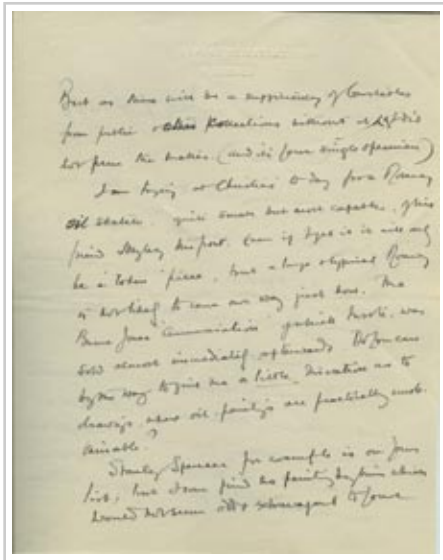 But as there will be a sufficiency of Constables
from public & other collections without it I did
not press the matter. (and it's four single specimen)
I am trying at Christies to day for a Romney
oil sketch, quite small but most capable, of his
friend Mayley Import. Even if I get it it will only
be a token piece, but a large & typical Romney
is not likely to come our way just now. The
Burne Jones 'Annunciation' gouache was
sold almost immediately afterwards. Do you care
by the way to give me a little direction as to
drawings where oil-paintings are practically unob-
tainable?
Stanley Spencer for example is on your
list, but I can find no painting by him which
would not seem odd & extravagant to you